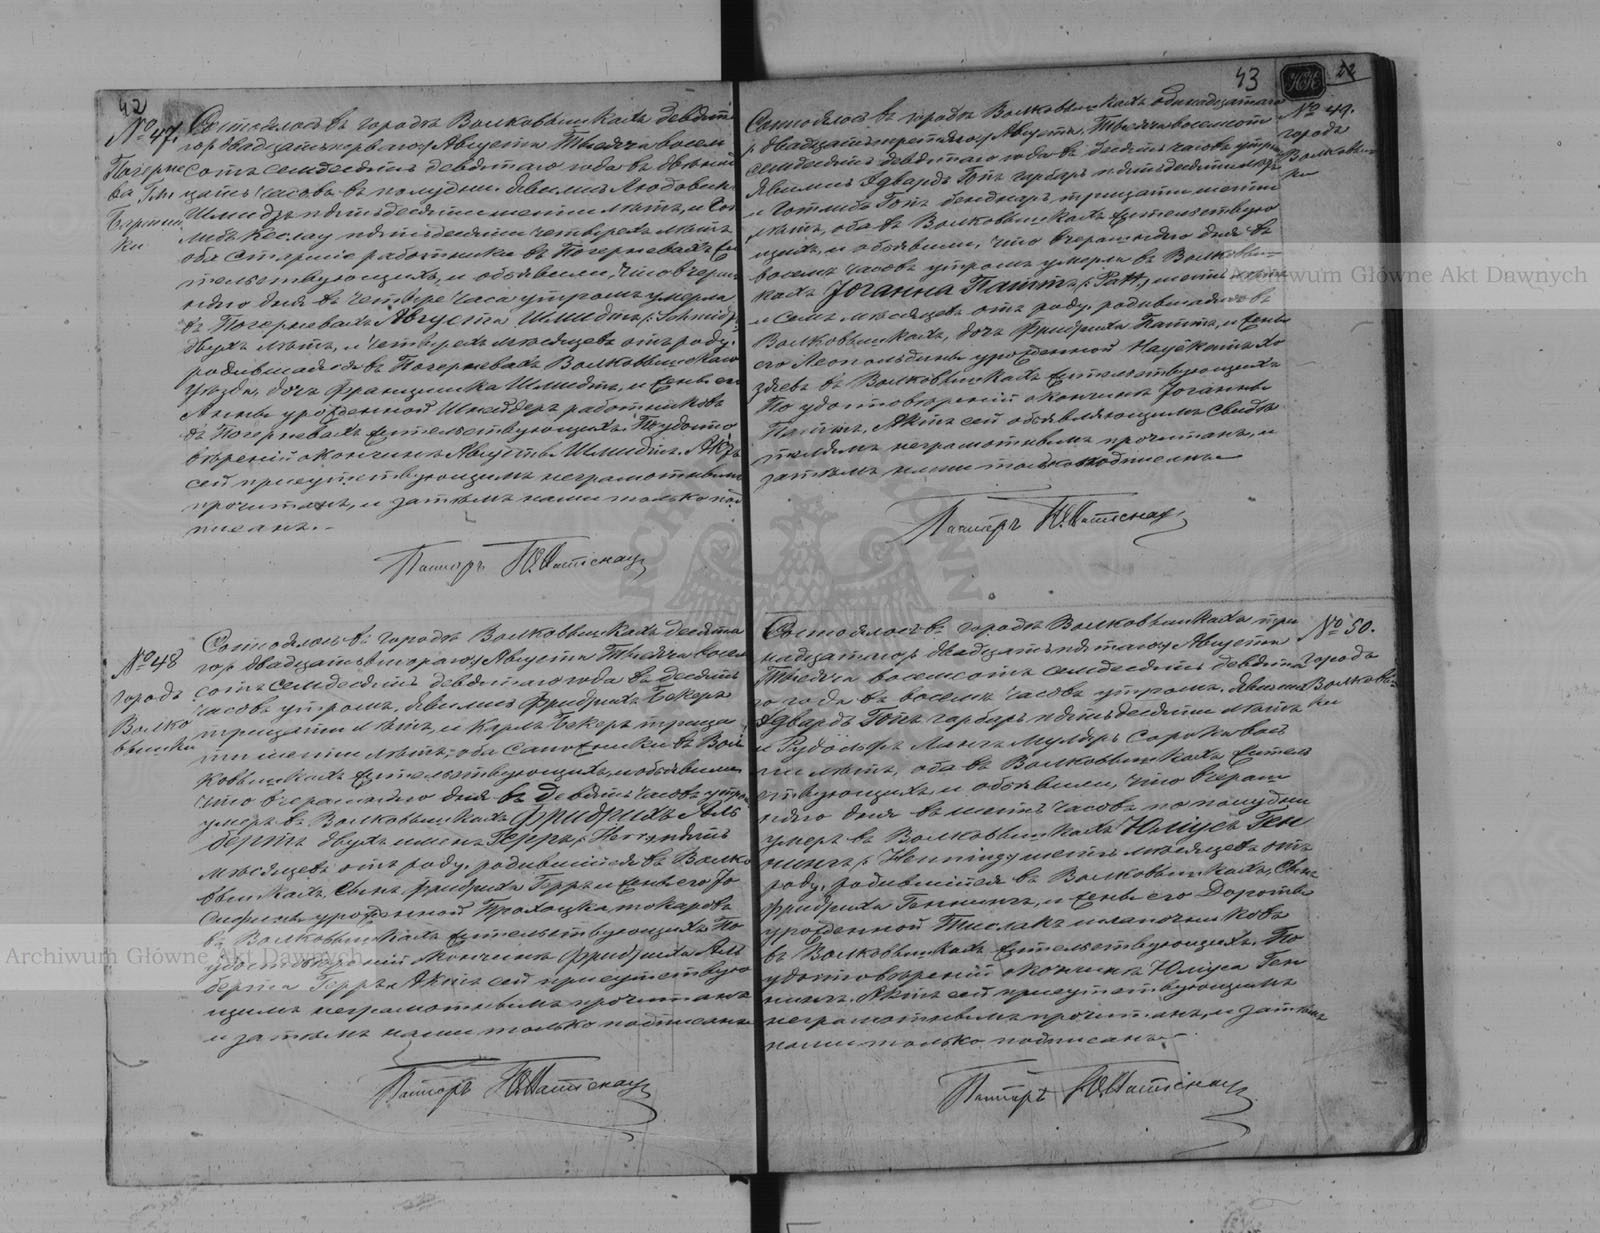 42
№ 47.
Погерне
ва Гни
Состоялось в городе Волковышках девято
го/двадцать перваго/ Августа Тысяча восемь
сотъ семдесятъ девятаго года въ двенад
цать часовъ въ полудни. Явились Людовикъ
Шмидтъ пятьдесяти шести летъ, и Гот
либъ Кеслау пятьдесяти четырехъ летъ
оба старшие работники въ Погерневахъ жи
тельствующихъ, и объявили, что вчераш
няго дня въ четыре часа утромъ умерла
въ Погерневахъ Августа Шмидтъ /: Schmidt :/
двухъ летъ, и четырехъ месяцевъ отъ роду,
родившаяся въ Погерневахъ Волковышскаго
Уезда, дочь Францишка Шмидтъ, и жены его
Анны урожденной Шнейдеръ работниковъ
въ Погерневахъ жительствующихъ. По удосто
верении о кончине Августы Шмидтъ, Актъ
сей присутствующимъ неграмотнымъ
прочитанъ, и затемъ нами только под
писанъ. -
Пасторъ
№ 48
городъ
Волко
вышки
Состоялось въ городе Волковышкахъ десята
го/ двадцать втораго/ Августа Тысяча восемь
сотъ семдесятъ девятаго года въ десять
часовъ утромъ. Явились Фридрихъ Бекеръ
тридцати летъ, и Карлъ Бекеръ тридца
ти шести летъ, оба сапожники въ Вол
ковышкахъ жительствующихъ, и объявили
что вчерашняго дня въ девять часовъ утромъ
умеръ въ Волковышкахъ Фридрихъ Аль
бертъ двухъ именъ Герръ /: Herr :/ девять
месяцевъ отъ роду, родившийся въ Волко
вышкахъ, сынъ Фридриха Герръ и жены его Жо
сефины урожденной Прохоцка, токаровъ
въ Волковышкахъ жительствующихъ. По
удостоверении о кончине Фридриха Аль
берта Герръ, Актъ сей присутствую
щимъ неграмотнымъ прочитанъ
и затемъ нами только подписанъ
Пасторъ
43
22
№ 49.
городъ
Волковыш
ки
Состоялось въ городе Волковышкахъ одинадцатаго
/: двадцать третьяго :/ Августа, Тысяча восемсотъ
семдесятъ девятаго года въ десять часовъ утромъ
Явились Эдвардъ Гопъ гарбаръ пятьдесяти летъ
и Готлибъ Гопъ беднаръ тридцати шести
летъ, оба въ Волковышкахъ жительствую
щихъ, и объявили, что вчерашняго дня въ
восемь часовъ утромъ умерла въ Волковыш
кахъ Іоганна Паттъ /: Patt :/, шесть летъ
и семь месяцевъ отъ роду, родившаяся въ
Волковышкахъ, дочь Фридриха Паттъ, и жены
его Леопольдины урожденной Наўёкатъ хо
зяевъ въ Волковышкахъ жительствующихъ
По удостоверении о кончине Іоганны
Паттъ, Актъ сей объявляющимъ свиде
телямъ неграмотнымъ прочитанъ, и
затемъ нами только подписанъ
Пасторъ
№ 50.
городъ
Волковыш
ки
Состоялось въ городе Волковышкахъ три
надцатаго/ двадцать пятаго/ Августа
Тысяча восемсотъ семдесятъ девята
го года въ восемь часовъ утромъ. Явились
Эдвардъ Гопъ гарбаръ пятьдесяти летъ
и Рудольфъ Лангъ муляръ сорока вось
ми летъ, оба въ Волковышкахъ житель
ствующихъ, и объявили, что вчераш
няго дня въ шесть часовъ по полудни
умеръ въ Волковышкахъ Юліусъ Ген
нингъ /: Henning :/ шесть месяцевъ отъ
роду, родившийся въ Волковышкахъ, сынъ
Фридриха Геннингъ, и жены его Доротеи
урожденной Тислакъ шапочниковъ
въ Волковышкахъ жительствующихъ. По
удостоверении о кончине Юліуса Ген
нингъ, Актъ сей присутствующимъ
неграмотнымъ прочитанъ, и затемъ
нами только подписанъ. -
Пасторъ
Archiwum Główne Akt Dawnych
Archiwum Główne Akt Dawnych